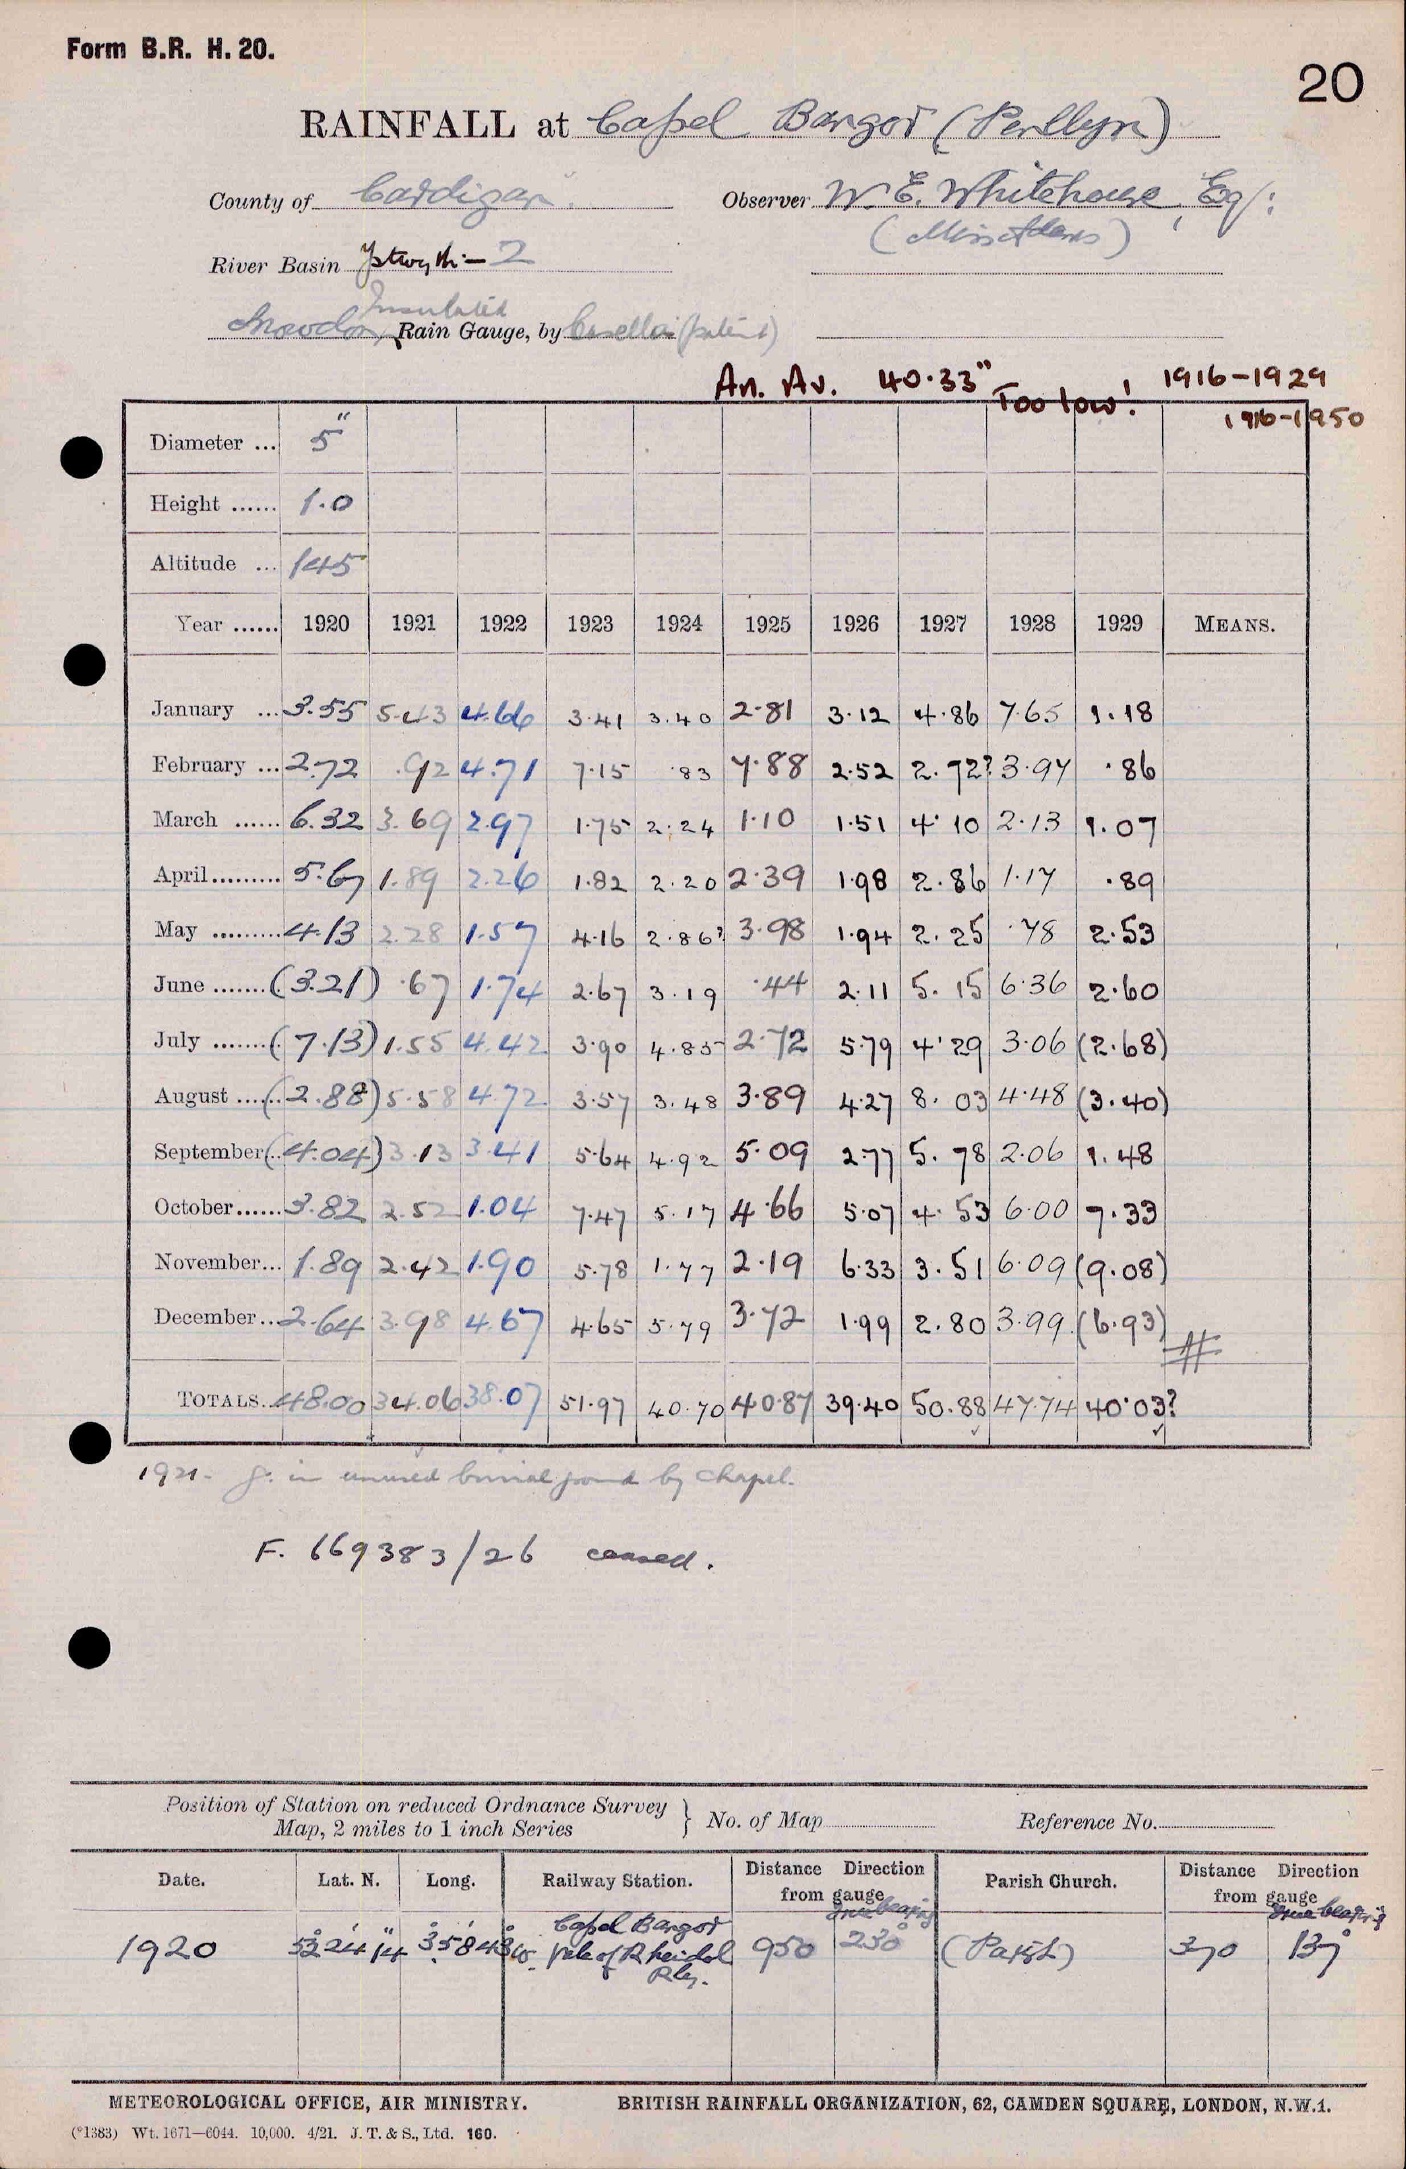 Form B.R. H. 20.
20
RAINFALL at Capel Bangor (Penllyn)
County of Cardigan. Observer W. E. Whitehouse, Esq:
River Basin Ystwyth - 2
Insulated
Snowdon, Rain Gauge, by Casella (patent)
An. Av. 40.33" Too low! 1916-1929
1916-1950
Diameter ... 5"
Height ...... 1.0
Altitude ... 145
Year ...... 1920 1921 1922 1923 1924 1925 1926 1927 1928 1929 MEANS.
January ... 3.55 5.43 4.66 3.41 3.40 2.81 3.12 4.86 7.65 1.18
February ... 2.72 .92 4.71 7.15 .83 7.88 2.52 2.72? 3.97 .86
March ...... 6.32 3.69 2.97 1.75 2.24 1.10 1.51 4.10 2.13 1.07
April ......... 5.67 1.89 2.26 1.82 2.20 2.39 1.98 2.86 1.17 .89
May ......... 4.13 2.28 1.57 4.16 2.86? 3.98 1.94 2.25 .78 2.53
June ....... (3.21) .67 1.74 2.67 3.19 .44 2.11 5.15 6.36 2.60
July ....... (7.13) 1.55 4.42 3.90 4.85 2.72 5.79 4.29 3.06 (2.68)
August ...... (2.88) 5.58 4.72 3.57 3.48 3.89 4.27 8.03 4.48 (3.40)
September .. (4.04) 3.13 3.41 5.64 4.92 5.09 2.77 5.78 2.06 1.48
October ...... 3.82 2.52 1.04 7.47 5.17 4.66 5.07 4.53 6.00 7.33
November ... 1.89 2.42 1.90 5.78 1.77 2.19 6.33 3.51 6.09 (9.08)
December ... 2.64 3.98 4.67 4.65 5.79 3.72 1.99 2.80 3.99 (6.93)
#
TOTALS... 48.00 34.06 38.07 51.97 40.70 40.87 39.40 50.88 47.74 40.03?
1921- g. in unused burial ground by chapel.
F. 669383/26 ceased.
Position of Station on reduced Ordnance Survey
Map, 2 miles to 1 inch Series } No. of Map Reference No.
Date. Lat. N. Long. Railway Station. Distance Direction from gauge Parish Church. Distance Direction from gauge
true bearing true bearing
1920 52° 24' 14" 3° 58' 43" W. Capel Bangor Vale of Rheidol Rly. 950 230° (Parish) 370 137°
METEOROLOGICAL OFFICE, AIR MINISTRY. BRITISH RAINFALL ORGANIZATION, 62, CAMDEN SQUARE, LONDON, N.W.1.
(*1383) Wt. 1671—6044. 10,000. 4/21. J. T. & S., Ltd. 160.